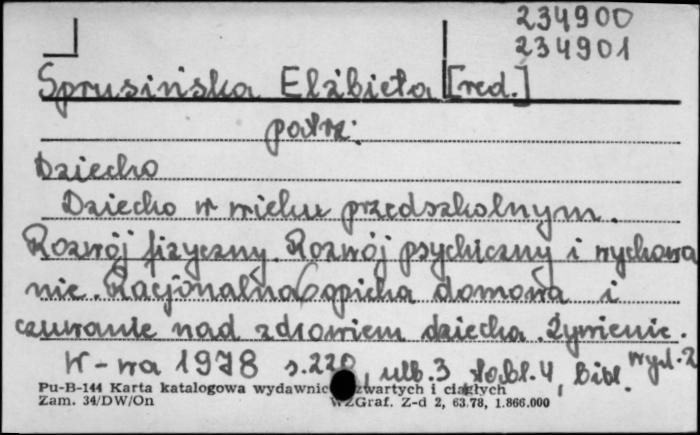 234900
234901
Sprusińska Elżbieta [red.]
patrz:
Dziecko
Dziecko w wieku przedszkolnym.
Rozwój fizyczny. Rozwój psychiczny i wychowa
nie. Racjonalna opieka domowa i
czuwanie nad zdrowiem dziecka. Żywienie.
W-wa 1978 s.220, ulb.3 tabl.4, Bibl. wyd.2
Pu-B-144 Karta katalogowa wydawnic zwartych i ciągłych
Zam. 34/DW/On WZGraf. Z-d 2, 63.78, 1.866.000